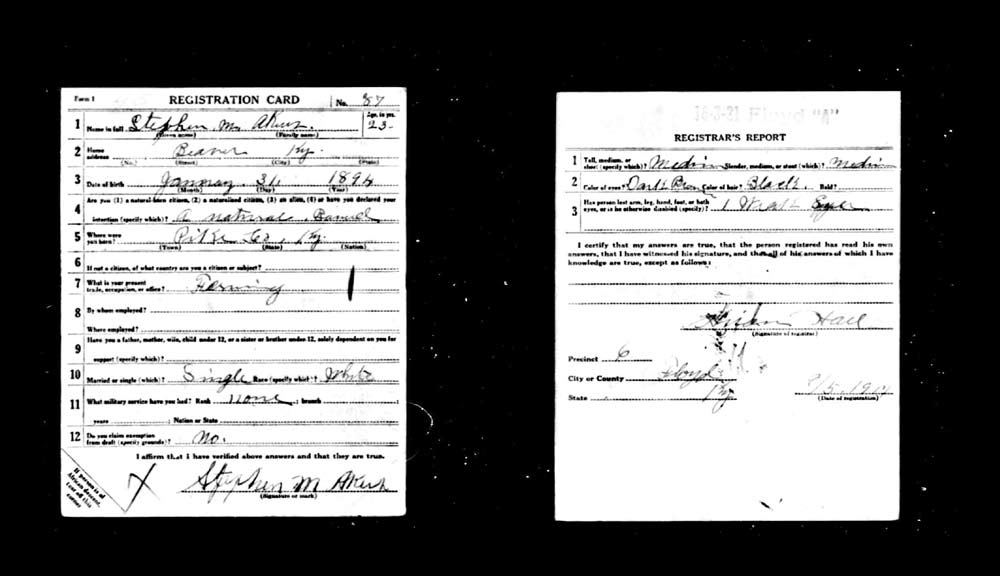 Form 1 REGISTRATION CARD No. 87
1 Name in full Stephen M. Akers. Age, in yrs. 23
(Given name) (Family name)
2 Home address Beaver Ky.
(No.) (Street) (City) (State)
3 Date of birth January 31 1894
(Month) (Day) (Year)
4 Are you (1) a natural-born citizen, (2) a naturalized citizen, (3) an alien, (4) or have you declared your
intention (specify which)? A natural
5 Where were you born? Pike Co., Ky.
(Town) (State) (Nation)
6 If not a citizen, of what country are you a citizen or subject?
7 What is your present trade, occupation, or office? Farming
8 By whom employed?
Where employed?
9 Have you a father, mother, wife, child under 12, or a sister or brother under 12, solely dependent on you for
support (specify which)?
10 Married or single (which)? Single Race (specify which)? White
11 What military service have you had? Rank None ; branch ;
years ; Nation or State
12 Do you claim exemption from draft (specify grounds)? No.
I affirm that I have verified above answers and that they are true.
X Stephen M Akers
(Signature or mark)
If person is of
African descent,
tear off this
corner
16-3-21 Floyd "A"
REGISTRAR'S REPORT
1 Tall, medium, or short (specify which)? Medium Slender, medium, or stout (which)? Medium
2 Color of eyes? Dark Brown Color of hair? Black Bald?
3 Has person lost arm, leg, hand, foot, or both
eyes, or is he otherwise disabled (specify)? 1 Weak Eye
I certify that my answers are true, that the person registered has read his own
answers, that I have witnessed his signature, and that all of his answers of which I have
knowledge are true, except as follows:
Hall
(Signature of registrar)
Precinct 6
City or County Floyd
State Ky
(Date of registration)